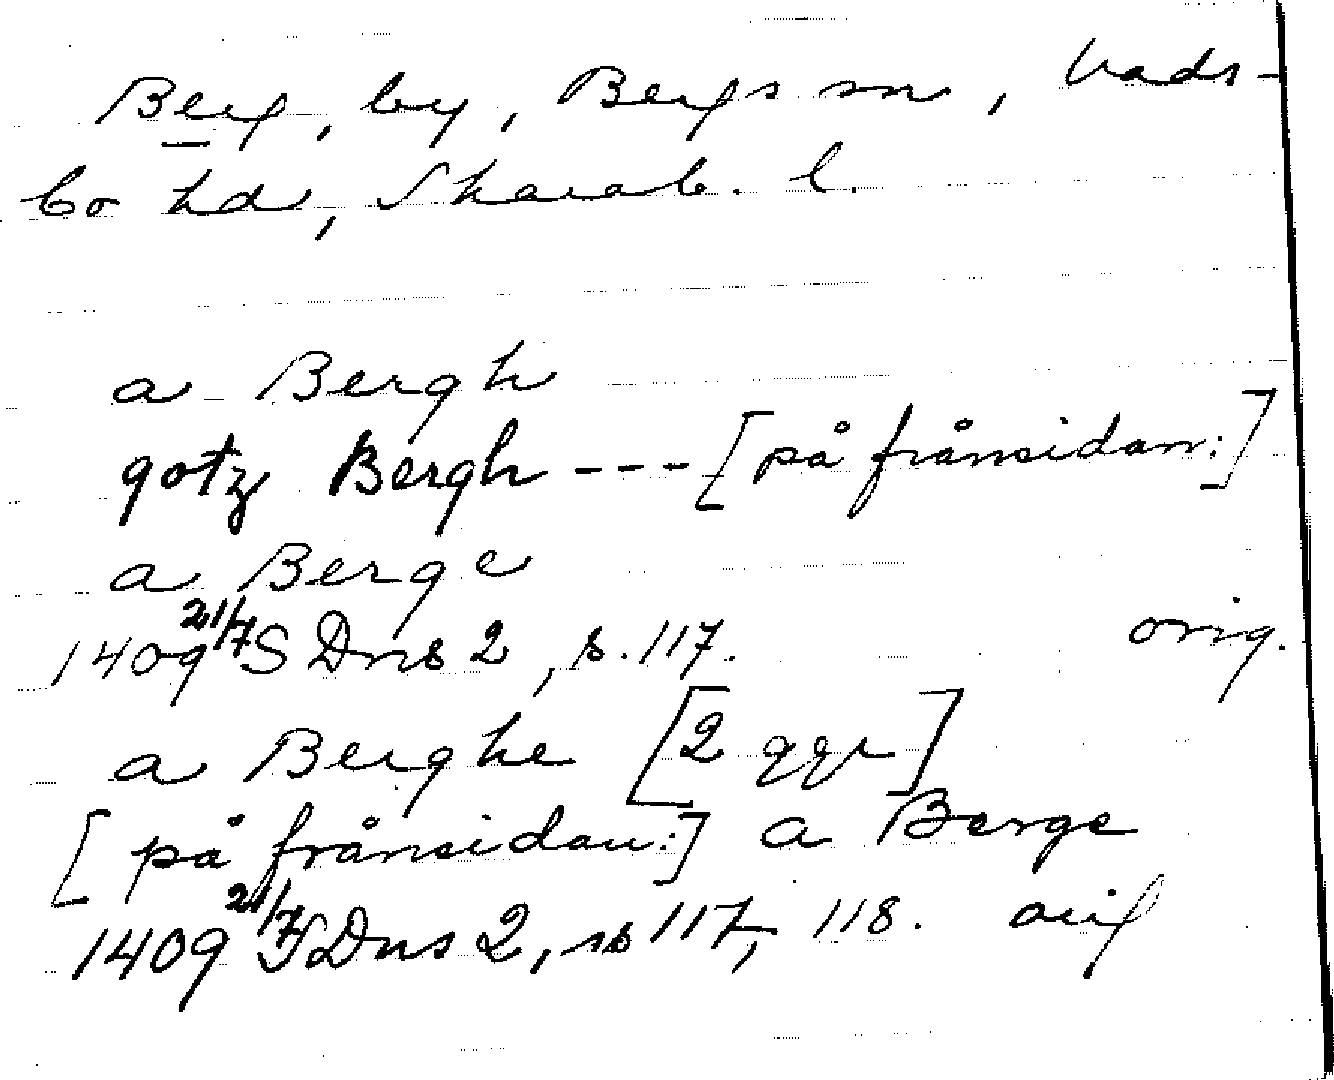 Berg, by, Bergs sn, Vads-
bo hd, Skarab. l.
a Bergh
gotz Bergh --- [på frånsidan:]
a Berge
1409 21/7 SDns 2, s. 117. orig.
a Berghe [2 ggr]
[på frånsidan:] a Berge
1409 21/7 SDns 2, ss 117, 118. orig